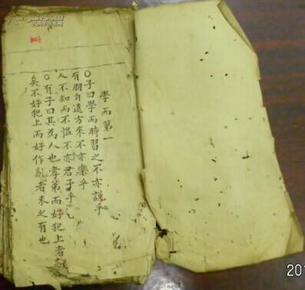 學而第一
○子曰學而時習之不亦說乎
有朋自遠方來不亦樂乎
人不知而不慍不亦君子乎
○有子曰其為人也孝弟而好犯上者
矣不好犯上而好作亂者未之有也
201